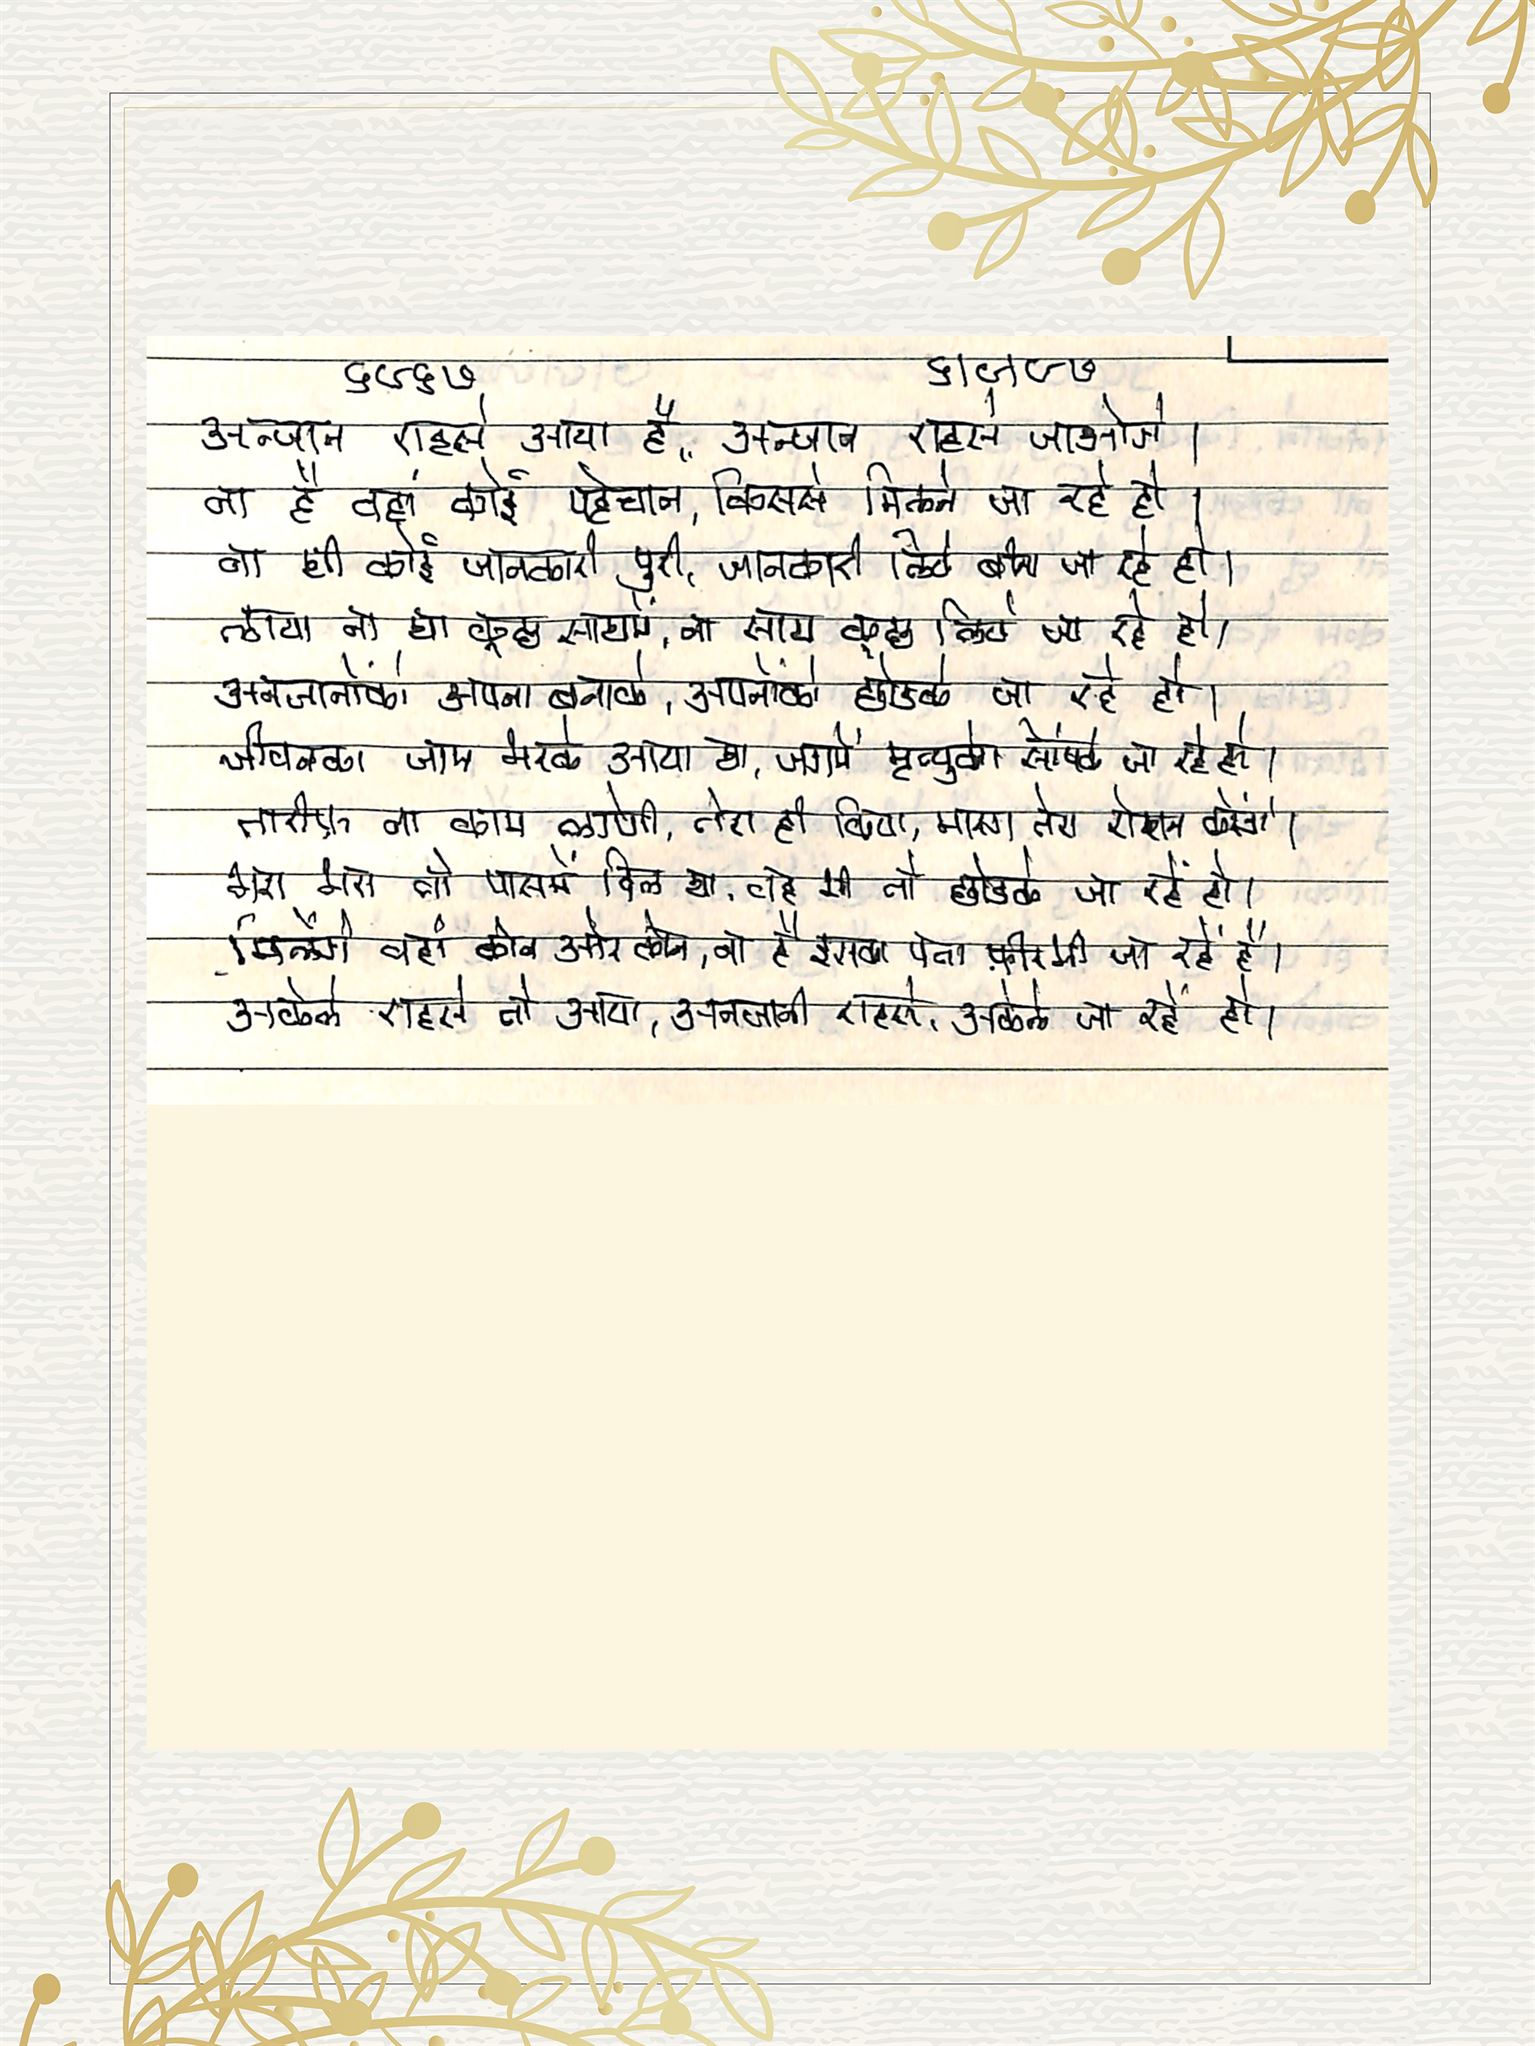 अन्जान राहसे आया है, अन्जान राहसे जाओगे।
ना है वहां कोई पहेचान, किससे मिलने जा रहे हो।
ना थी कोई जानकारी पुरी, जानकारी लिये बीना जा रहे हो।
लाया ना था कुछ साथमें, ना साथ कुछ लिये जा रहे हो।
अनजानोंको अपना बनाके, अपनोंको छोडके जा रहे हो।
जीवनका जाम भरके आया था, जगमें मृत्युको सोंपके जा रहे हो।
तारीफ ना काम लगेगी, तेरा ही किया, मारग तेरा रोशन करेंगे।
मेरा तो पासमें दिल था, वह भी तो छोडके जा रहें हो।
मिलेंगे वहां कौन और कोन, ना है इसका पता फीरभी जा रहें हैं।
अकेले राहसे तो आया, अनजानी राहसे, अकेले जा रहें हो।